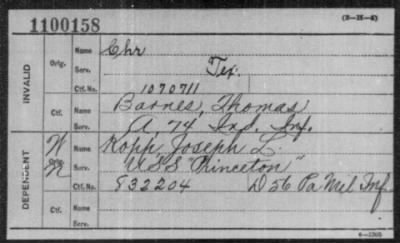 1100158
(3-H-4)
INVALID
Orig.
Name Chr
Serv. Tex.
Ctf. No. 1070711
Ctf.
Name Barnes, Thomas
Serv. A, 74 Ind. Inf.
DEPENDENT
W
Orig.
Name Kopp, Joseph L.
Serv. USS "Princeton"
Ctf. No. 832204 D 56 Pa Mil Inf
Ctf.
Name
Serv.